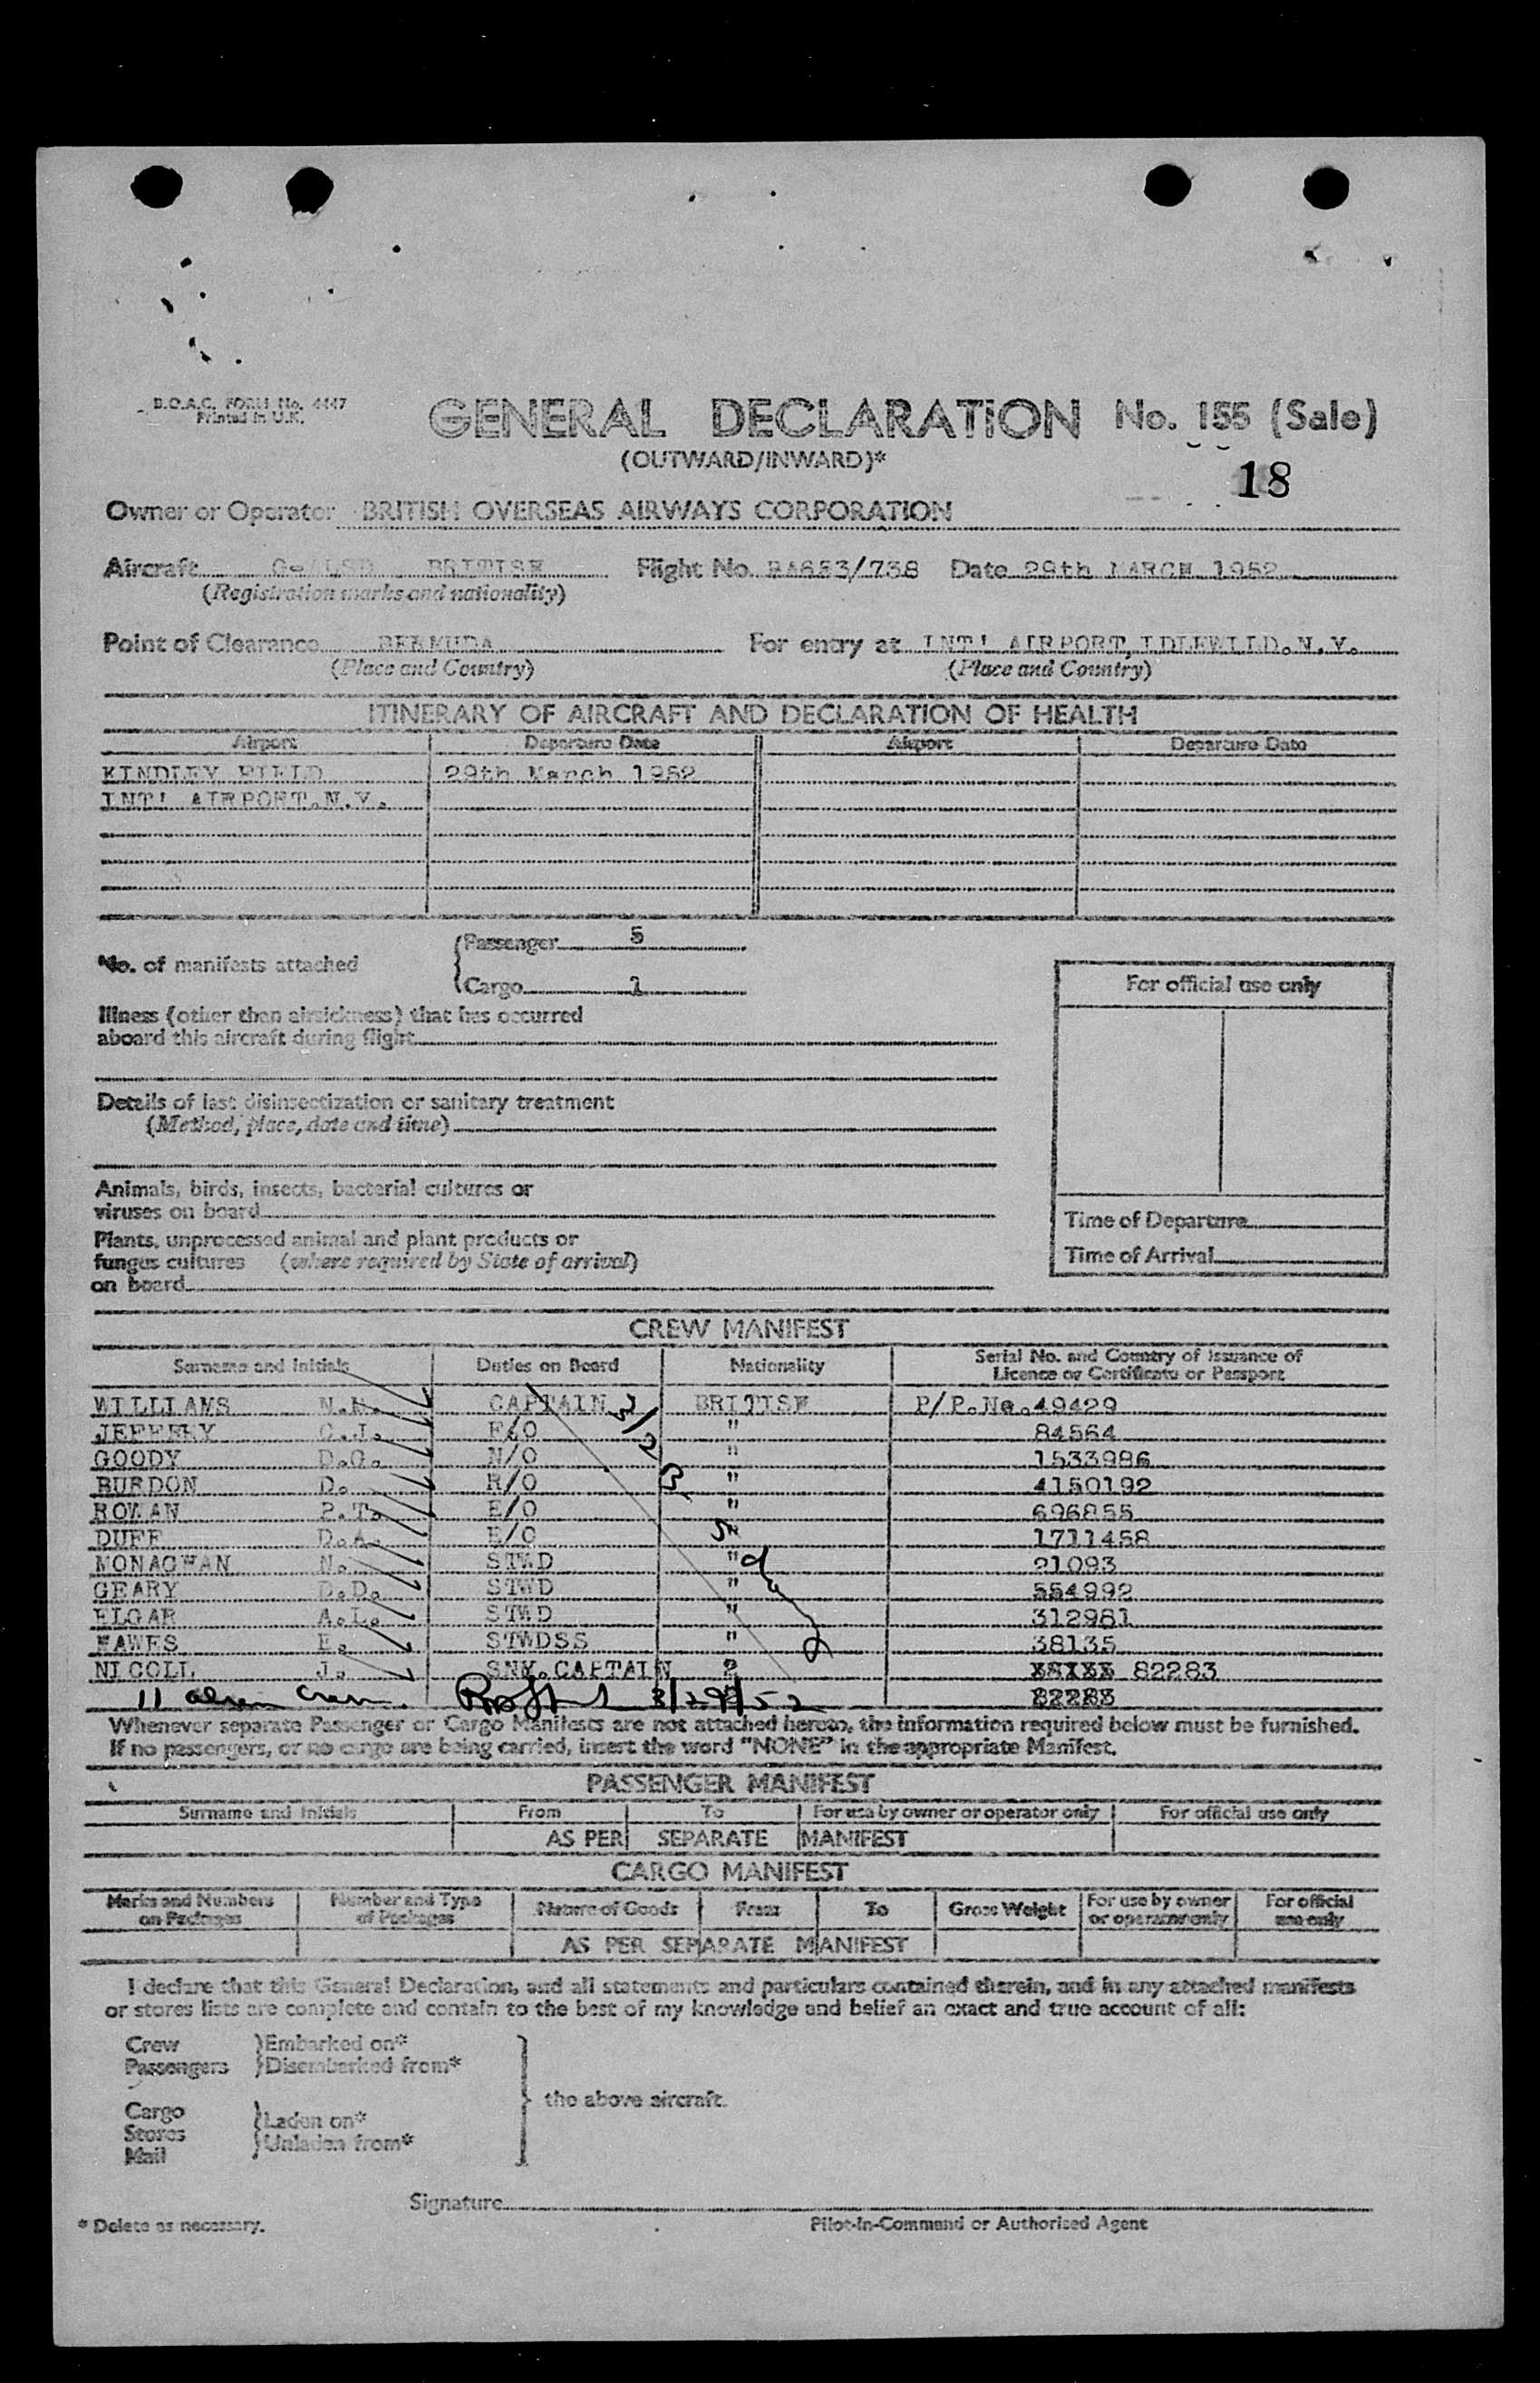 B.O.A.C. FORM No. 4447
Printed in U.K.
GENERAL DECLARATION No. 155 (Sale)
(OUTWARD/INWARD)*
18
Owner or Operator BRITISH OVERSEAS AIRWAYS CORPORATION
Aircraft BRITISH Flight No. BA653/738 Date 29th MARCH 1952
(Registration marks and nationality)
Point of Clearance BERMUDA For entry at INT'L AIRPORT, IDLEWILD. N.Y.
(Place and Country) (Place and Country)
ITINERARY OF AIRCRAFT AND DECLARATION OF HEALTH
Airport Departure Date Airport Departure Date
KINDLEY FIELD 29th March 1952
INT'L AIRPORT.N.Y.
No. of manifests attached
Passenger 5
Cargo 1
For official use only
Illness (other than airsickness) that has occurred
aboard this aircraft during flight
Details of last disinsectization or sanitary treatment
(Method, place, date and time)
Animals, birds, insects, bacterial cultures or
viruses on board
Time of Departure
Plants, unprocessed animal and plant products or
fungus cultures (where required by State of arrival)
on board
Time of Arrival
CREW MANIFEST
Surname and Initials Duties on Board Nationality Serial No. and Country of Issuance of
Licence or Certificate or Passport
WILLIAMS N.N. CAPTAIN BRITISH P/P.No.49429
JEFFERY C.J. F/O " 84564
GOODY D.G. N/O " 1533986
BURDON D. R/O " 4150192
ROWAN P.T. E/O " 696855
DUFF D.A. E/O " 1711458
MONAGHAN N. STWD " 21093
GEARY D.D. STWD " 554992
ELGAR A.L. STWD " 312981
HAWES E. STWDSS " 38135
NICOLL J. SNY.CAPTAIN 82283
11 alien Crew. 3/29/52 82283
Whenever separate Passenger or Cargo Manifests are not attached hereto, the information required below must be furnished.
If no passengers, or no cargo are being carried, insert the word "NONE" in the appropriate Manifest.
PASSENGER MANIFEST
Surname and Initials From To For use by owner or operator only For official use only
AS PER SEPARATE MANIFEST
CARGO MANIFEST
Marks and Numbers on Packages Number and Type of Packages Nature of Goods From To Gross Weight For use by owner or operator only For official use only
AS PER SEPARATE MANIFEST
I declare that this General Declaration, and all statements and particulars contained therein, and in any attached manifests
or stores lists are complete and contain to the best of my knowledge and belief an exact and true account of all:
Crew Embarked on*
Passengers Disembarked from*
the above aircraft.
Cargo Laden on*
Stores Unladen from*
Mail
Signature
* Delete as necessary. Pilot-in-Command or Authorised Agent